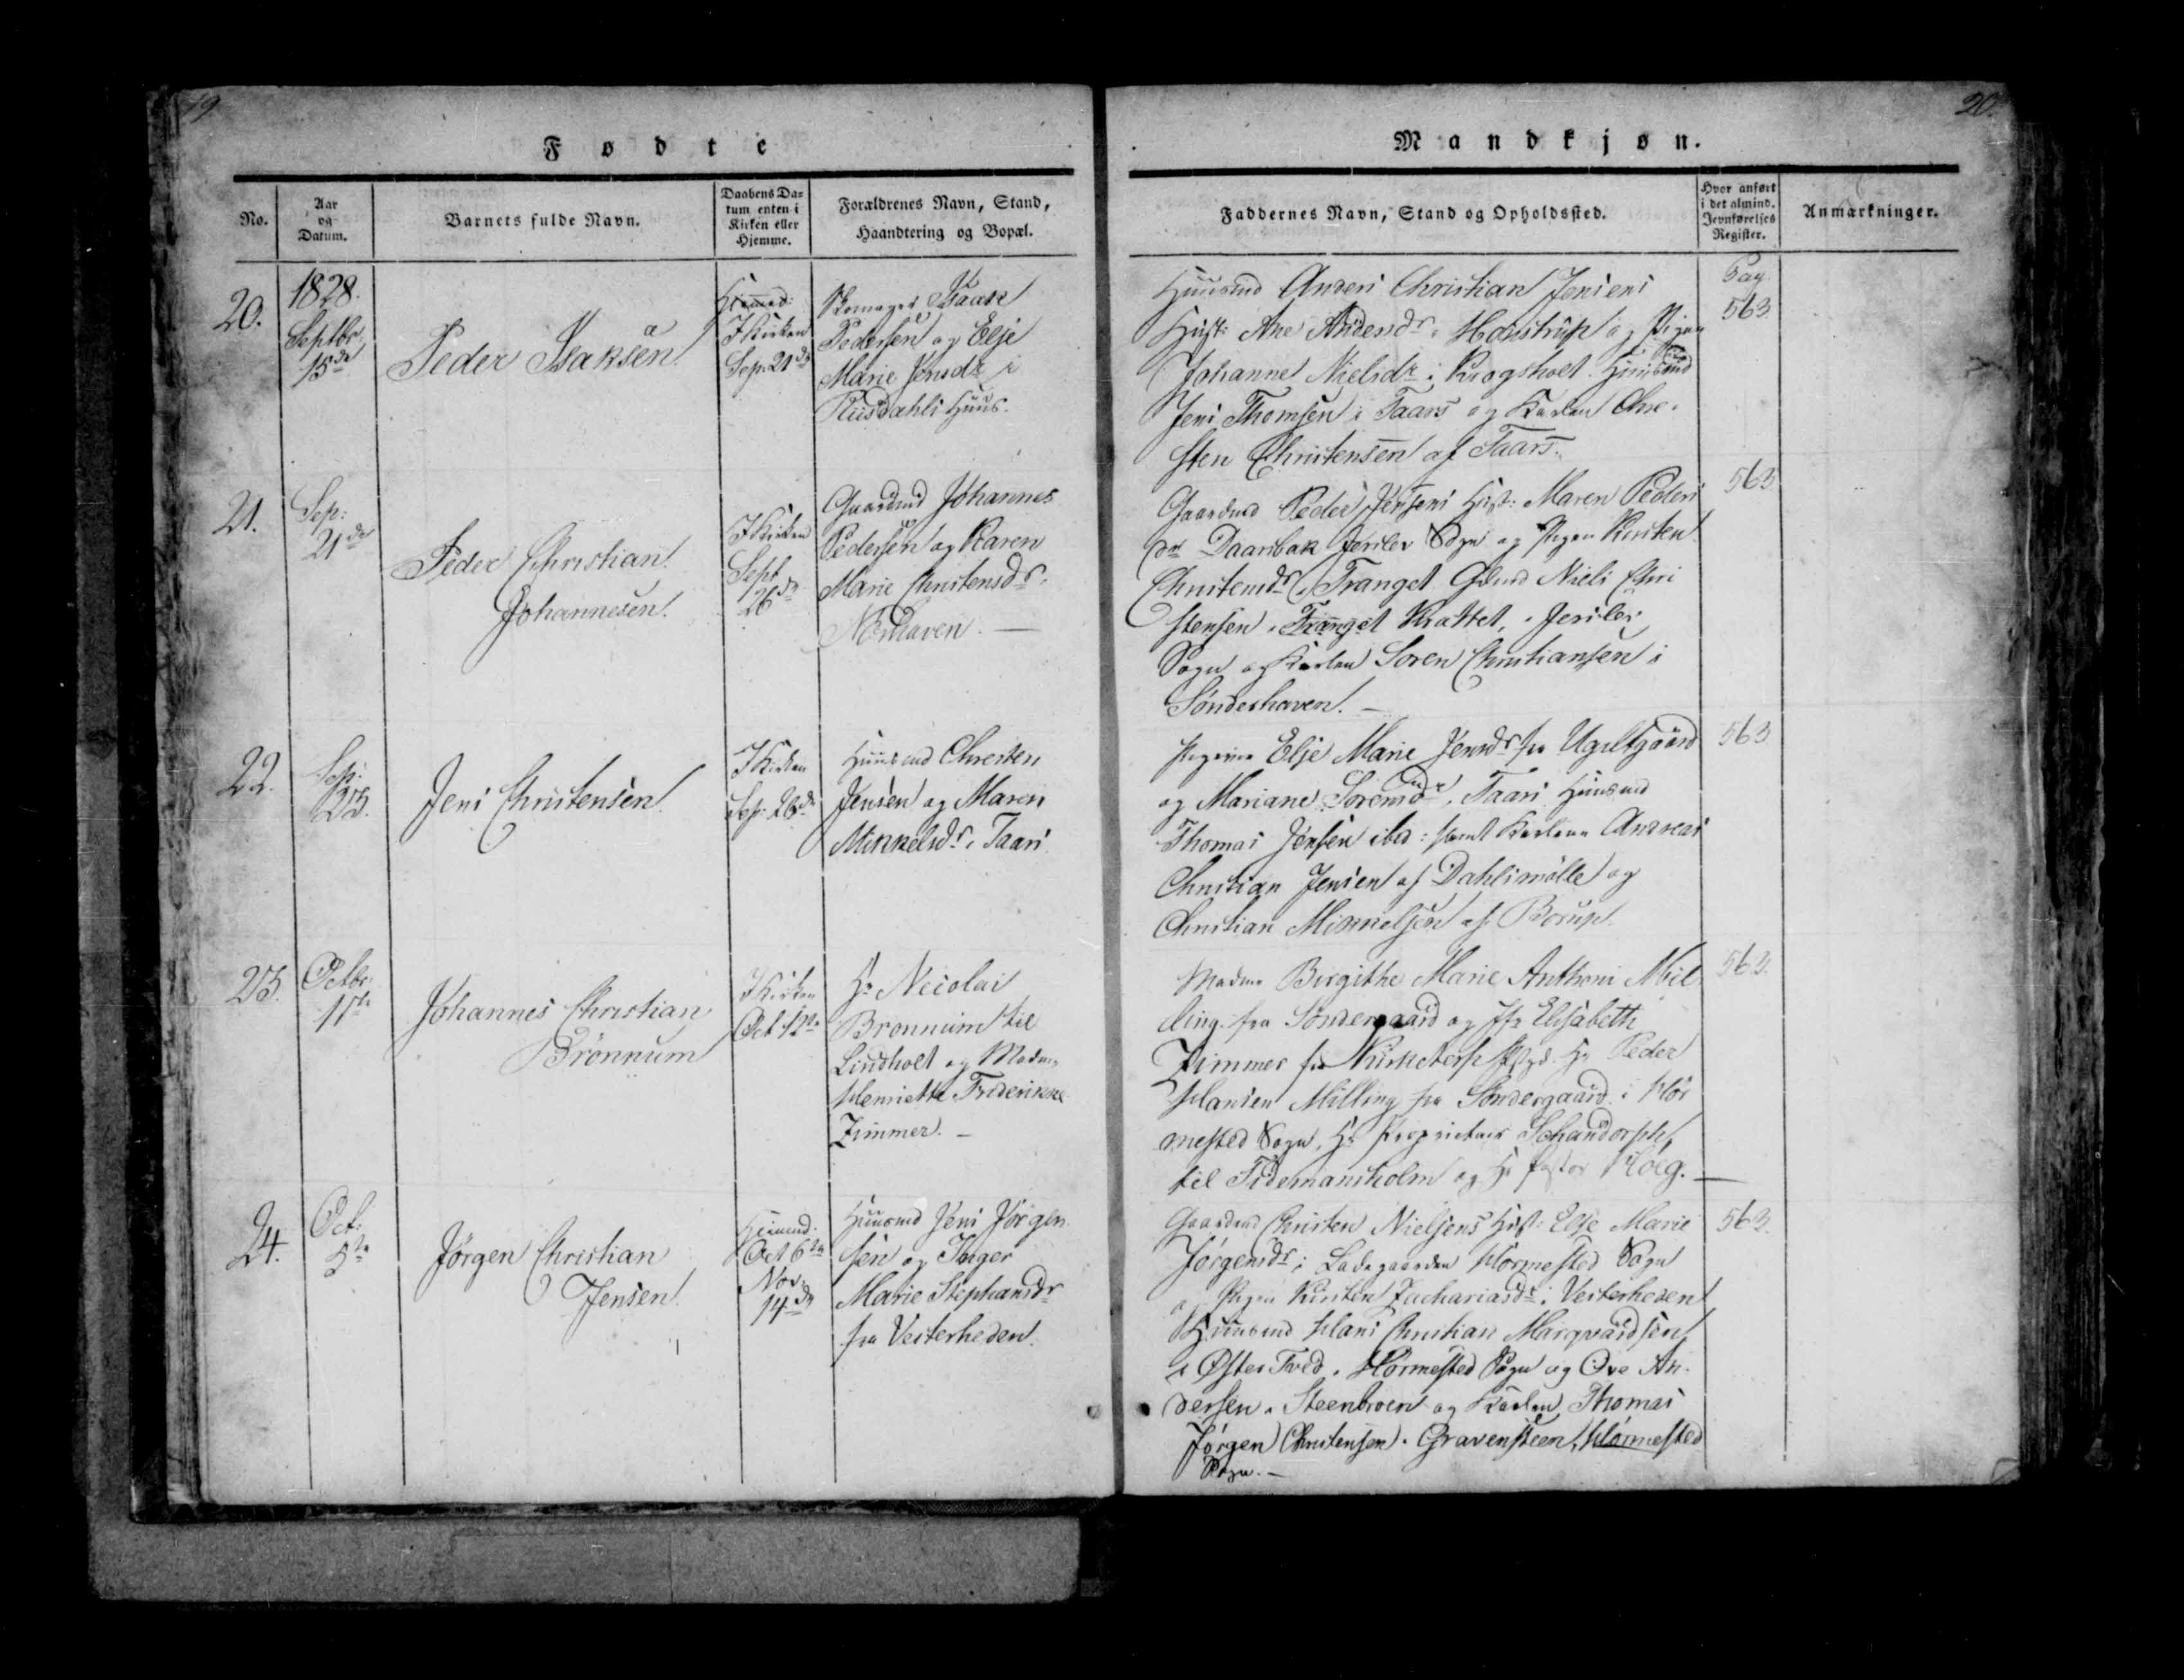 19
20.
Fødte
Mandkjøn.
No.
Aar
og
Datum.
Barnets fulde Navn.
Daabens Da=
tum enten i
Kirken eller
Hjemme.
Forældrenes Navn, Stand,
Haandtering og Bopæl.
Faddernes Navn, Stand og Opholdssted.
Hvor anført
i det almind.
Jevnførelses
Register.
Anmærkninger.
20.
1828.
Septbr
15de
Peder Isaksen
I Kirken
Sep: 21de
Isaak
Pedersen og Else
Marie Jensdr i
Huus.
Huusmd Anders Christian Jensens
Hust: Ane Andersdr i Harstrup og Pigen
Johanne Nielsdr i Krogsholt Huusmd
Jens Thomsen i Taars og Karlen Chre=
sten Christensen af Taars.
Pag
563
21.
Sep:
21de
Peder Christian
Johannesen
I Kirken
Sept
26de
Gaardmd Johannes
Pedersen og Karen
Marie Christensdr
Nørhaven. —
Gaardmd Peder Jensens Hust: Maren Peders
dr Daarbak Jerslev Sogn og Pigen Kirsten
Christensdr i Tranget Gdmd Niels Chri
stensen i Tranget Krattet i Jerslev
Sogn og Karlen Soren Christiansen i
Sønderhaven. —
563
22.
Sep:
23.
Jens Christensen
I Kirken
Sep: 28de
Huusmd Chresten
Jensen og Maren
Mikkelsdr i Taars
Pigerne Else Marie Jensdr fra Ugiltgaard
og Mariane Sorensdr i Taars Huusmd
Thomas Jensen ibd: samt Karlene Andreas
Christian Jensen af Dahlsmølle og
Christian Mikkelsen af Borup.
563
23.
Octbr
11te
Johannes Christian
Brønnum
I Kirken
Oct 12te
Hr Nicolai
Bronnum til
Lindholt og Madme
Henriette Friderikke
Zimmer. —
Madme Birgithe Marie Anthoni Mil
ling fra Søndergaard og Jfr Elisabeth
Zimmer fra Hr Peder
Hansen Milling fra Søndergaard i Hør
mested Sogn, Hr Proprietair Schandorph
til Tidemansholm og Hr Pastor Ploeg. —
563.
24.
Oct:
5te
Jørgen Christian
Jensen
Hiemmd.
Oct 6te
Nov:
14de
Huusmd Jens Jørgen
sen og Inger
Marie Stephansdr
fra Vesterheden.
Gaardmd Christen Nielsens Hust: Else Marie
Jørgensdr i Ladegaarden Hørmested Sogn
og Pigen Kirsten Zachariasdr i Vesterheden
Huusmd Hans Christian Marqvardsen
i Øster Tved i Hørmested Sogn og Ove An=
dersen i Steenbroen og Karlen Thomas
Jørgen Christensen i Gravensteen, Hørmested
Sogn. —
563.